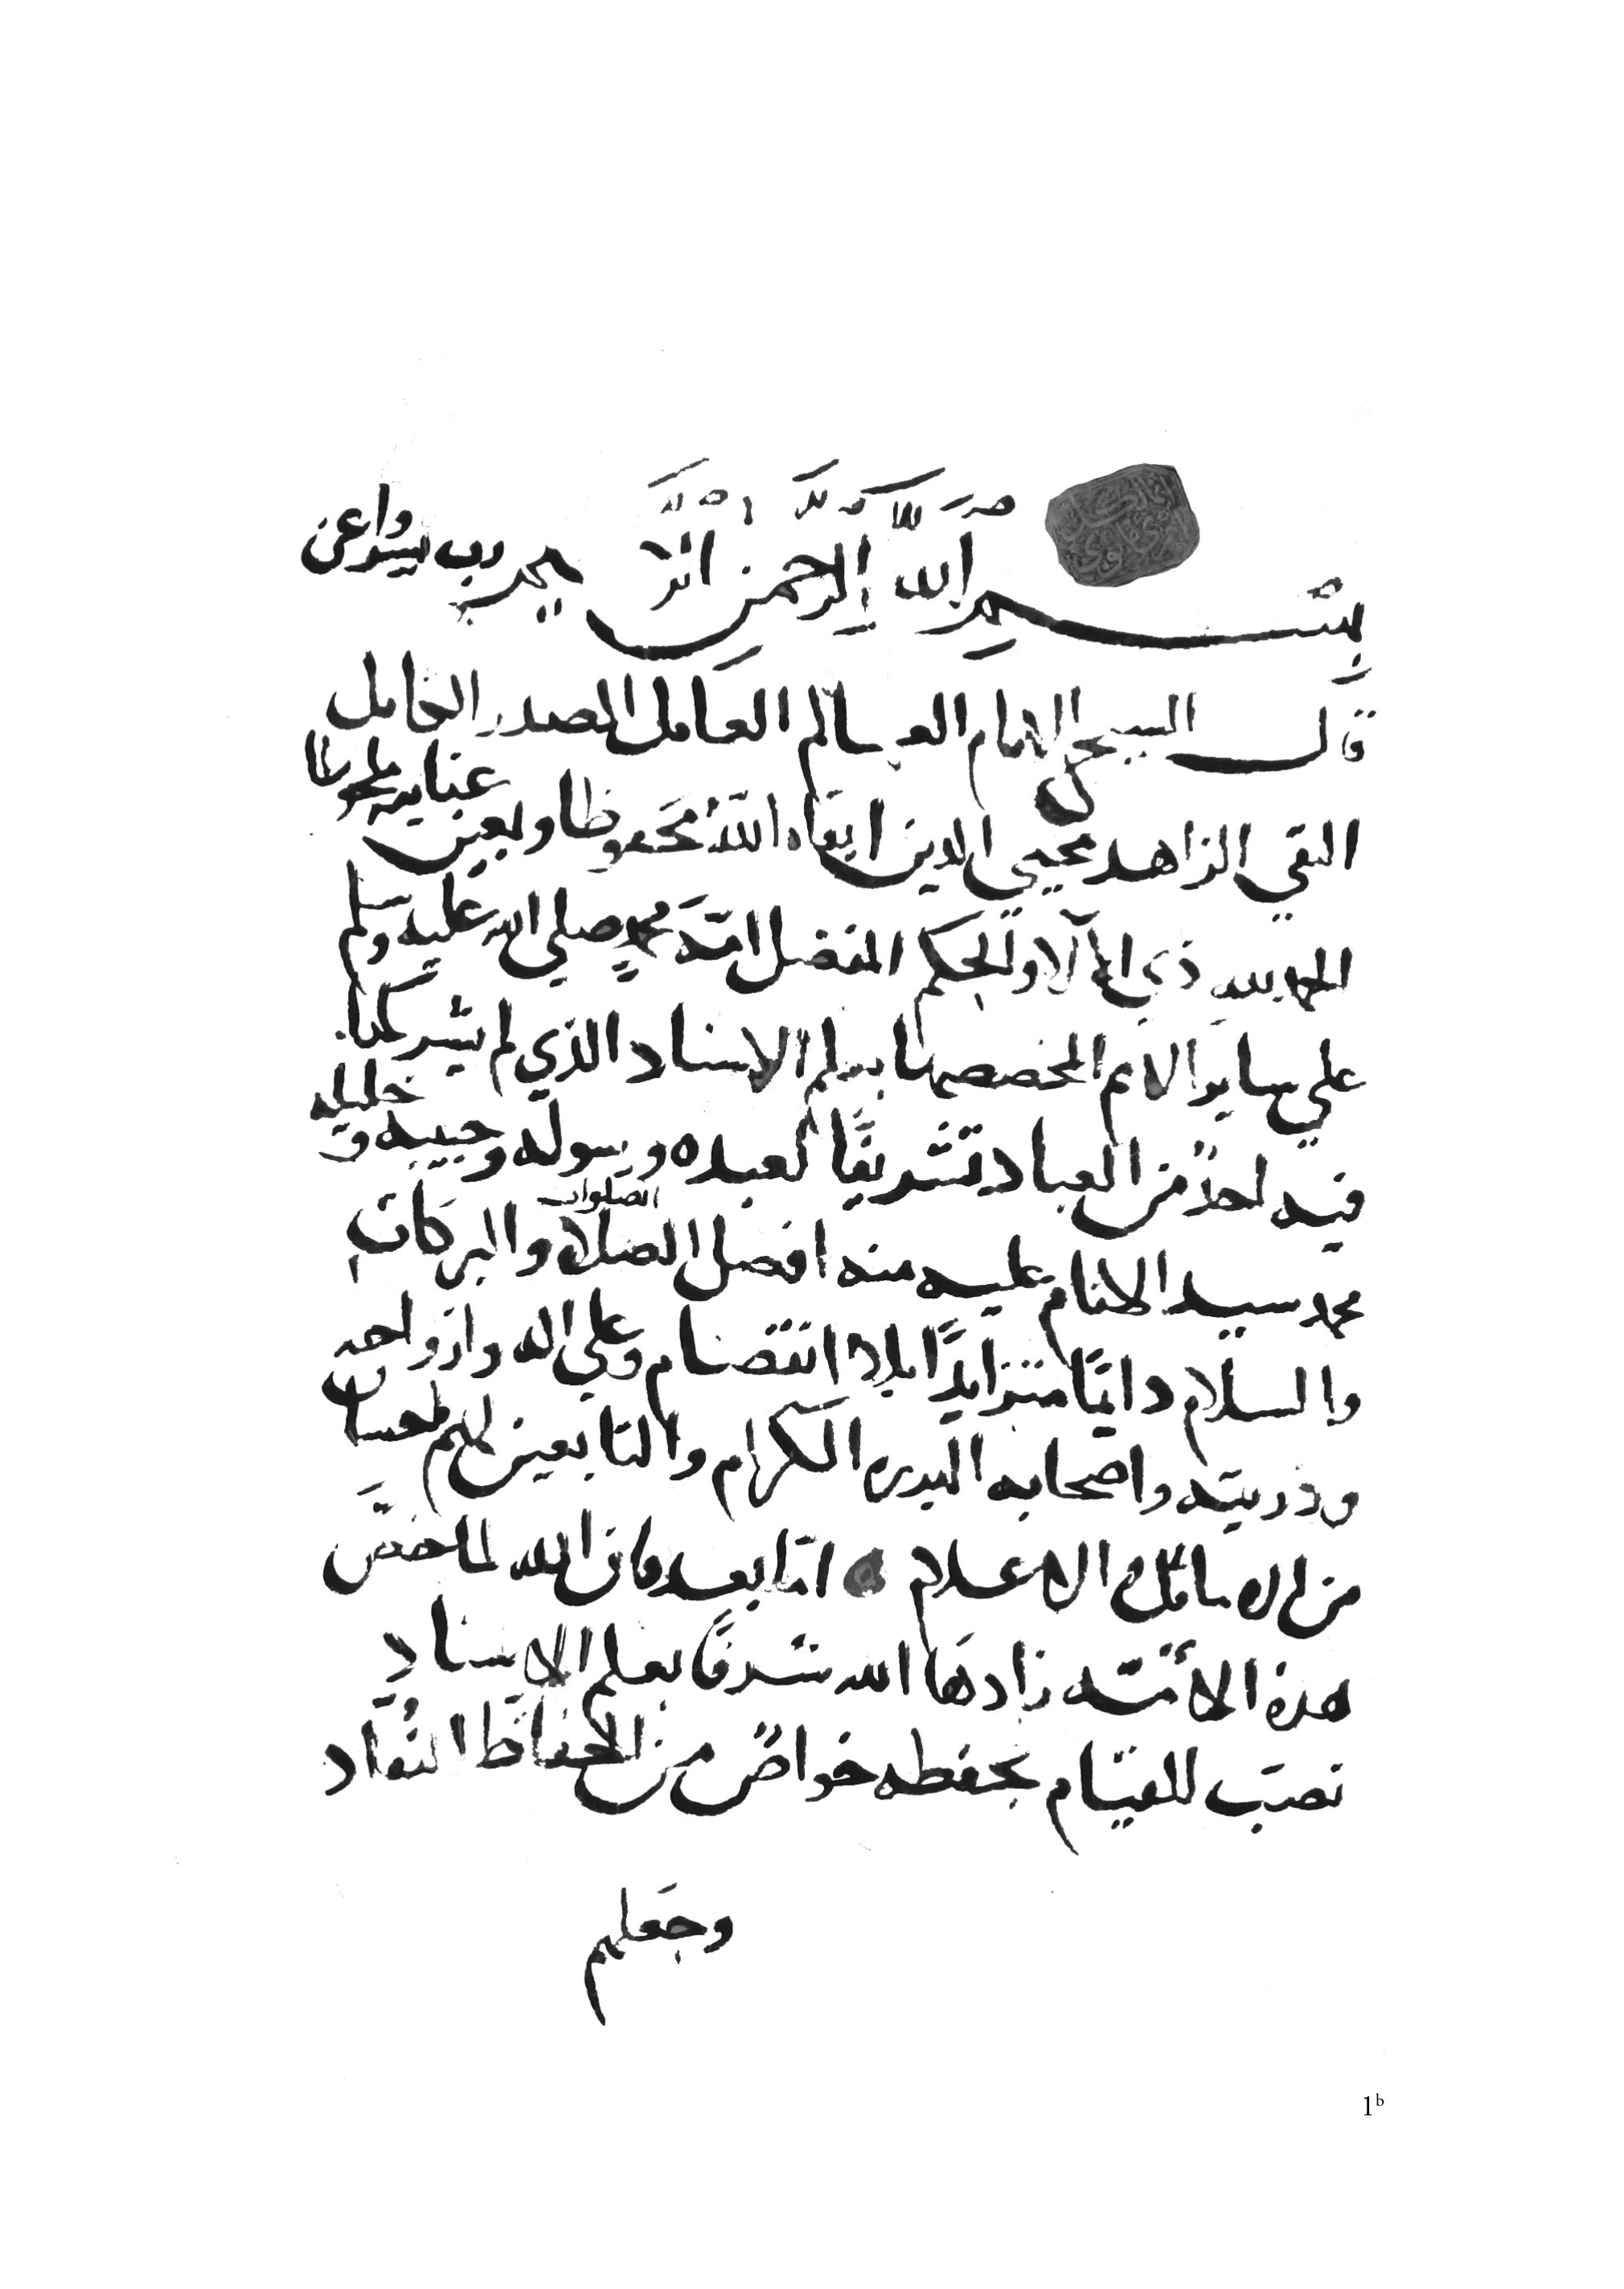 بسم الله الرحمن الرحيم رب يسر واعن
قال الشيخ الامام العالم العامل الصدر الكامل
التقي الزاهد محيي الدين ابقاه الله محفوظا وبعين عنايته ملحوظا
الحمد لله ذي الآلاء والحكم المفضل امة محمد صلى الله عليه وسلم
على ساير الامم المخصصها بعلم الاسناد الذي لم يشركها
فيه احدٌ من العباد تشريفًا لعبده ورسوله وحبيبه وخليله
محمد سيد الانام عليه منه افضل الصلاة الصلوات والبركات
والسلام دائمًا متزايدًا بلا انفصام وعلى اله وازواجه
وذريته واصحابه البررة الكرام والتابعين لهم باحسان
من الاماثل والاعلام اما بعد فان الله لما خصّ
هذه الامّة زادها الله شرفًا بعلم الاسنادِ
نصبَ للقيام بحفظه خواصّ من الحفاظ النُّقّاد
وجعلهم
1b